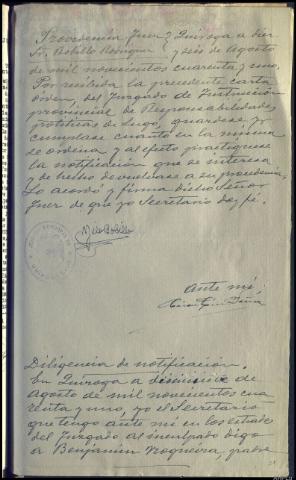 Providencia Juez Quiroga a diez
Sr. Robillo Rodriguez y seis de Agosto
de mil novecientos cuarenta y uno.
Por recibida la precedente carta
órden del Juzgado de Instrucción
provincial de Responsabilidades
politicas de Lugo, guardese y
cumplase cuanto en la misma
se ordena y al efecto practiquese
la notificación que se interesa
y de hecho devuelvase a su procedencia
Lo acordó y firma dicho Señor
Juez de que yo Secretario doy fé.
Ante mi,
Diligencia de notificación.
En Quiroga a diecisiete de
Agosto de mil novecientos cua
renta y uno, yo el Secretario
que tengo ante mi en los estrados
del Juzgado al inculpado digo
a Benjamin Nogueira, padre